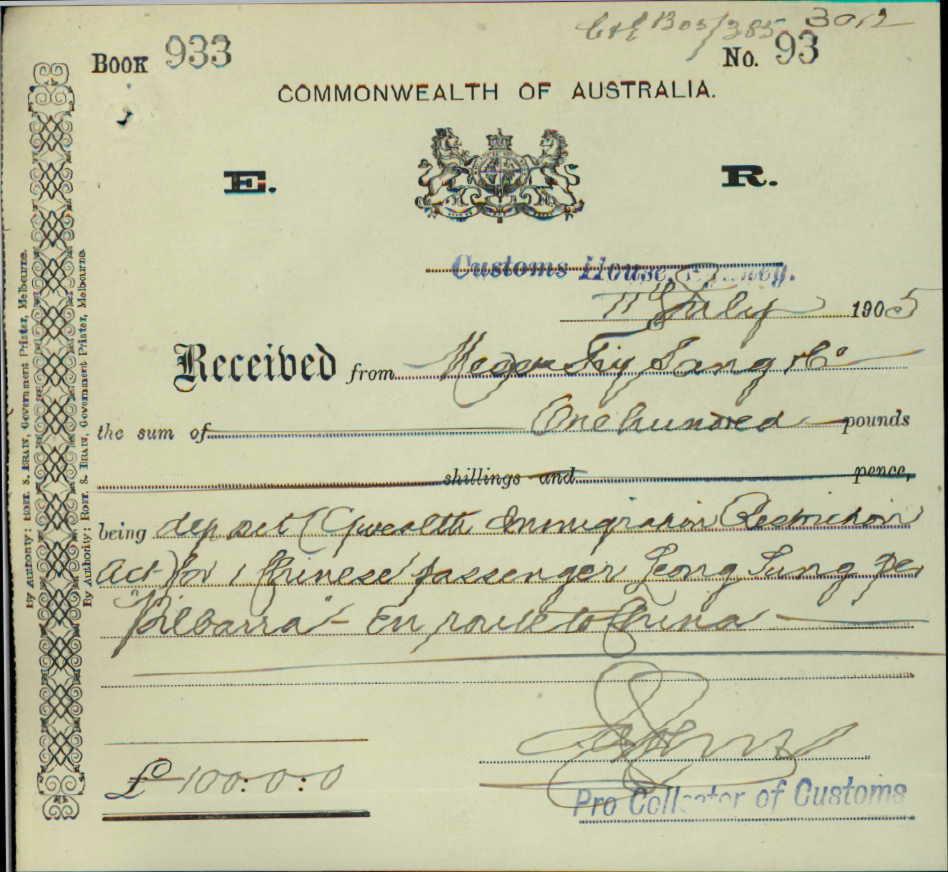 C&E B05/385 3012
BOOK 933 No. 93
COMMONWEALTH OF AUSTRALIA.
E. R.
Customs House, Sydney.
July 1905
Received from Tiy Sang & Co
the sum of One hundred pounds
shillings and pence,
being deposit (C'wealth Immigration Restriction
Act) for 1 Chinese passenger Leong Sung per
"Pilbarra" - En route to China
£100:0:0
Pro Collector of Customs
By Authority: ROBT. S. BRAIN, Government Printer, Melbourne.
By Authority: ROBT. S. BRAIN, Government Printer, Melbourne.